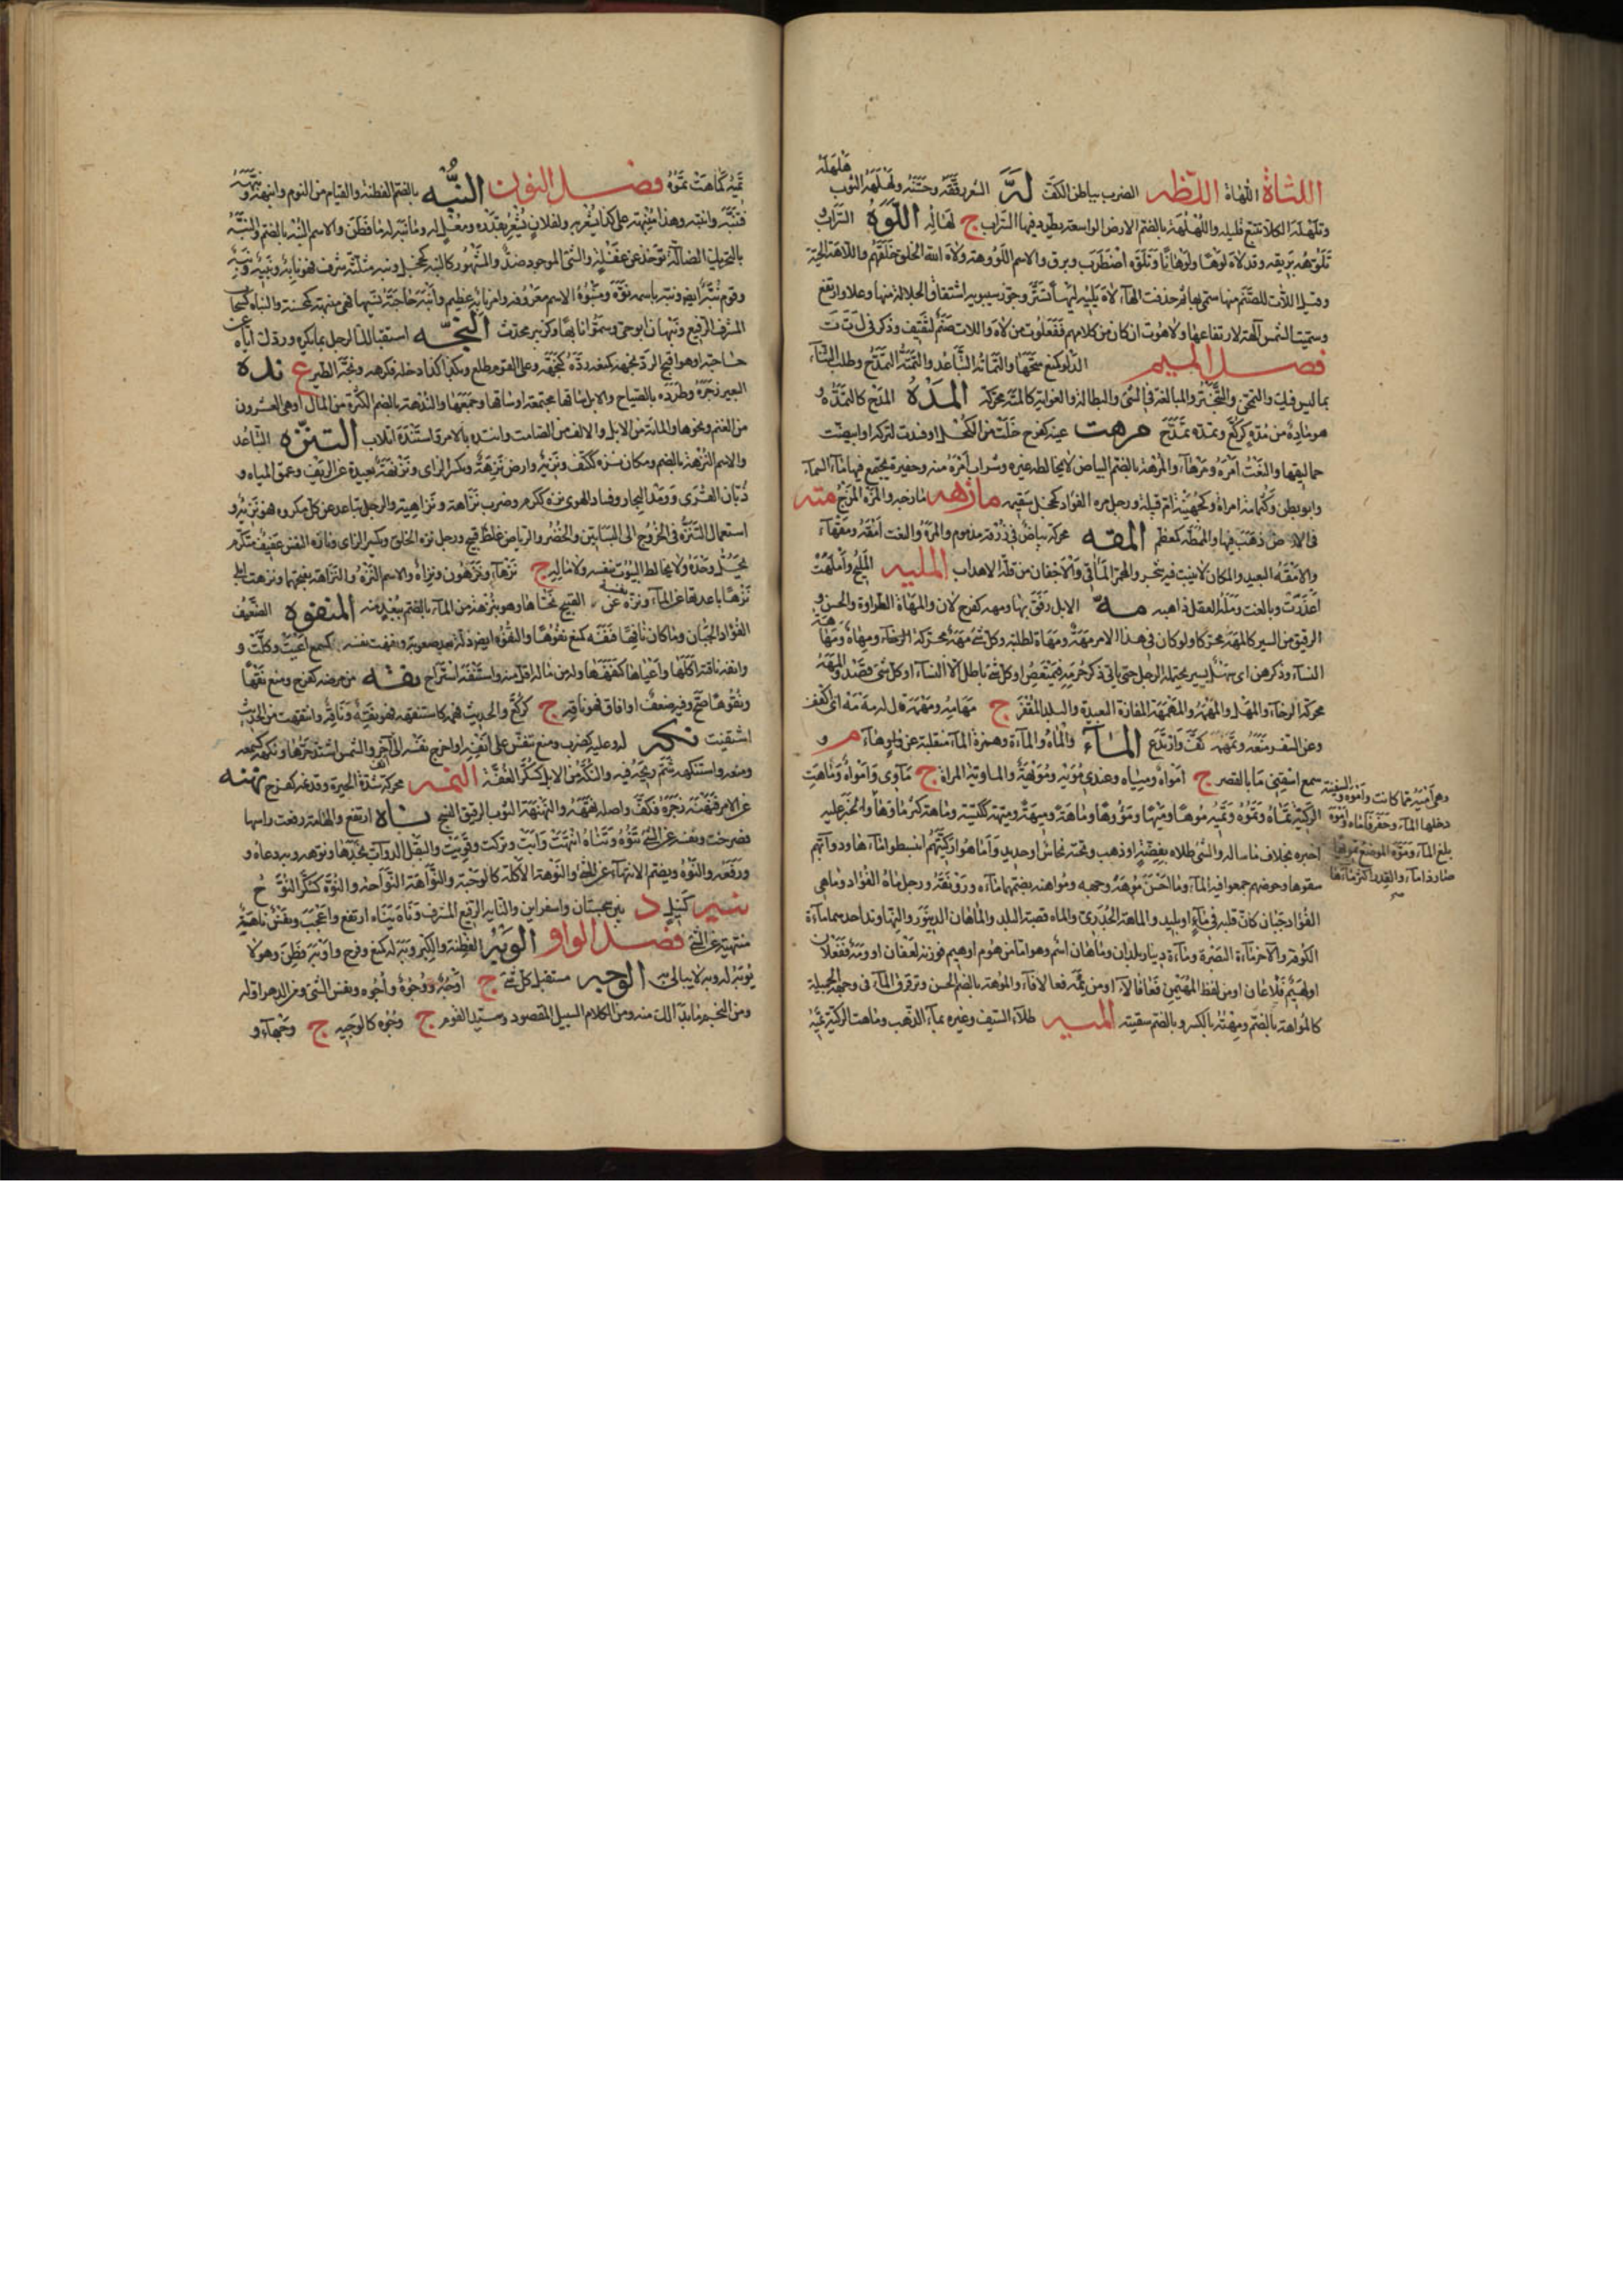 اللثاة اللهاة اللطه الضرب بباطن الكف له الشعر رققه وحسنه ولهله الثوب هلهله
وتلهله الكلأ تتبع قليله واللهله بالضم الارض الواسعة يطرد فيها السراب ج لهاله اللوه السراب
تلوه بريقه وقد لاه لوها ولوهانا وتلوه اضطرب وبرق والاسم اللووهة ولاه الله الخلق خلقهم واللاهة الحية
وقيل اللات للصنم منها سمى بها ثم حذفت الهاء لاه يليه ليها تستر وجوز سيبويه اشتقاق الجلالة منها وعلا وارتفع
وسميت الشمس الاهة لارتفاعها ولاهوت ان كان من كلامهم ففعلوت من لاه واللات صنم لثقيف وذكر فى ل ت ت
فصل الميم الدلو كمنع متحها والتماته التباعد والتمته التمدح وطلب الثناء
بما ليس فيك والتحمق والتبختر والمبالغة فى الشئ والبطالة والغواية كالمته محركة المده المدح كالتمده
هو ماده من مده كركع وتمده تمدح مرهت عينه كفرح خلت من الكحل او فسدت لتركه او ابيضت
حماليقها والنعت امره ومرهاء والمرهة بالضم البياض لا يخالطه غيره وسراب امره منه وحفيرة يجتمع فيها ماء السماء
وابو بطن وكثمامة امراة وكجهينة ام قبيلة ورجل مره الفؤاد كخجل سقيمه مازهه مازحه والمزه المزح مته
فى الارض ذهب فيها والممطه كمعظم المقه محركة بياض فى زرقة مذموم والمره والنعت امقه ومقهاء
والامقه البعيد والمكان لا ينبت فيه شجر والمحمر المآقى والاجفان من قلة الاهداب المليه المليح واملهت
اعذرت وبالغت وممتله العقل ذاهبه مه الابل رفق بها ومهه كفرح لان والمهاه الطراوة والحسن و
الرفيق من السير كالمهه محركا ولو كان فى هذا الامر مهه ومهاه لطلبته وكل شئ مهه محركة ومهاه ومهاهة
النساء وذكرهن اى يسير يحتمله الرجل حتى ياتى ذكر حرمه فيمتعض او كل شئ باطل الا النساء او كل شئ قصد والمهه
محركة الرجاء والمهل والمهمه والمهمهة المفازة البعيدة والبلد المقفر ج مهامه ومهمهه قال له مه مه اى اكفف
وعن السفر منعه وتمهمه كف وارتدع الماء والماه والماءة وهمزة الماء منقلبة عن هاء م و
سمع اسقنى ما بالقصر ج امواه ومياه وعندى مويه ومويهة والماوية المراة ج ماوى وماهت
الركية تماه وتموه وتميه موها وميها ومؤوها وماهة وميهة فهى ميهة ككيسة وماهة كثر ماؤها
اخبره بخلاف ما ساله والشئ طلاه بفضة او ذهب وتحته نحاس او حديد واماهوا ركيتهم انبطوا ماءها ودوابهم
سقوها وحوضهم جمعوا فيه الماء وما احسن موهة وجهه ومواهته بضمهما ماءه ورونقه ورجل ماه الفؤاد وماهى
الفؤاد جبان كان قلبه فى ماء او بليد والماهة الجدرى والماه قصبة البلد والماهان الدينور ونهاوند احدهما ماءة
الكوفة والآخر ماءة البصرة وماءة دينار بلدان وماهان اسم وهو اما من هوم او هيم فوزنه لعفان او ومه فعفلان
او لهيم فلاعان او من لفظ المهيمن فعافال او من نمه فعالاف والموهة بالضم الحسن وترقرق الماء فى وجه الجميلة
كالمواهة بالضم ومهته بالكسر وبالضم سقيته الميه طلاء السيف وغيره بماء الذهب وماهت الركية تميه
وهى اميه مما كانت وامواه والسفينة
دخلها الماء وحفر فاماه واموه
بلغ الماء وموه الموضع تمويها
صار ذا ماء والقدر اكثر ماءها
صح
تميه كماهت تموه فصل النون النبه بالضم الفطنة والقيام من النوم وانبهته ونبهته
فتنبه وانتبه وهذا منبهة على كذا يشعر به ولفلان مشعر بقدره ومعل له وما نبه له ما فطن والاسم النبه بالضم والنبه
بالتحريك الضالة توجد عن غفلة والشئ الموجود ضد والمشهور كالنبه كخجل ونبه مثلثة شرف فهو نابه ونبيه ونبه
وقوم نبه ايضا ونبه باسمه نوه ومنبوه الاسم معروفه وامر نابه عظيم وانبه حاجته نسيها فهى منبهة كمحسنة والنباه كسحاب
المشرف الرفيع ونبهان ابو حى وسموا نابها وكزبير محدث النجه استقبالك الرجل بما يكره وردك اياه عن
حاجته او هو اقبح الرد نجهه كمنعه رده كنجهه وعلى القوم طلع وبلد كذا دخله فكرهه ونجه الطير ع نده
البعير زجره وطرده بالصياح والابل ساقها مجتمعة او ساقها وجمعها والندهة بالضم الكثرة من المال او هى العشرون
من الغنم ونحوها والمائة من الابل والالف من الصامت وانتده الامر واستنده اتلأب التنزه التباعد
والاسم النزهة بالضم ومكان نزه ككتف ونزيه وارض نزهة وبكسر الزاى ونزيهة بعيدة عن الريف وغمق المياه و
ذبان القرى وومد البحار وفساد الهوى نزه ككرم وضرب نزاهة ونزاهية والرجل تباعد عن كل مكروه فهو نزيه و
استعمال التنزه فى الخروج الى البساتين والخضر والرياض غلط قبيح ورجل نزه الخلق وبكسر الزاى ونازه النفس عفيف متكرم
يحل وحده ولا يخالط البيوت بنفسه ولا ماله ج نزهاء ونزهون ونزاه والاسم النزه والنزاهة بفتحهما ونزهت ابلى
نزها باعدتها عن الماء ونزه نفسه عن القبيح نحاها وهو بنزهة من الماء بالضم ببعد منه المنفوه الضعيف
الفؤاد الجبان وما كان نافها فنفه كمنع نفوها والنفوه ايضا ذلة بعد صعوبة ونفهت نفسه كسمع اعيت وكلت و
وانفه ناقته اكلها واعياها كنفهها وله من ماله اقل منه واستنفه استراح نقه من مرضه كفرح ومنع نقها
ونقوها صح وفيه ضعف او افاق فهو ناقه ج كركع والحديث فهمه كاستنقهه فهو نقه وناقه وانتقهت من الحديث
اشتفيت نكه له وعليه كضرب ومنع تنفس على انفه او اخرج نفسه الى آخر والشمس اشتد حرها ونكهه كسمعه
ومنعه واستنكهه شم ريح فيه والنكه من الابل كسكر النفه النمه محركة شبه الحيرة وقد نمه كفرح نهنهه
عن الامر فتنهنه زجره فكف واصله نههه والنهنه الثوب الرقيق النسج ناه ارتفع والهامة رفعت راسها
فصرخت ونفسه عن الشئ تنوه وتناه انتهت وابت وتركت وقويت والبقل الدواب مجدها ونوهه وبه دعاه و
ورفعه والنوه ويضم الانتهاء عن الشئ والنوهة الاكلة كالوجبة والنواهة النواحة والنوه كسكر النوح
نيه كنيل د بين سجستان واسفراين والنايه الرفيع المشرف وناه يناه ارتفع واعجب ونفس ناهة
منتهية عن الشئ فصل الواو الوبه الفطنة والكبر وبه له كمنع وفرح واوبه فطن وهو لا
يوبه له وبه لا يبالى به الوجه مستقبل كل شئ ج اوجه ووجوه واجوه ونفس الشئ ومن الدهر اوله
ومن النجم ما بدا لك منه ومن الكلام السبيل المقصود وسيد القوم ج وجوه كالوجيه ج وجهاء و